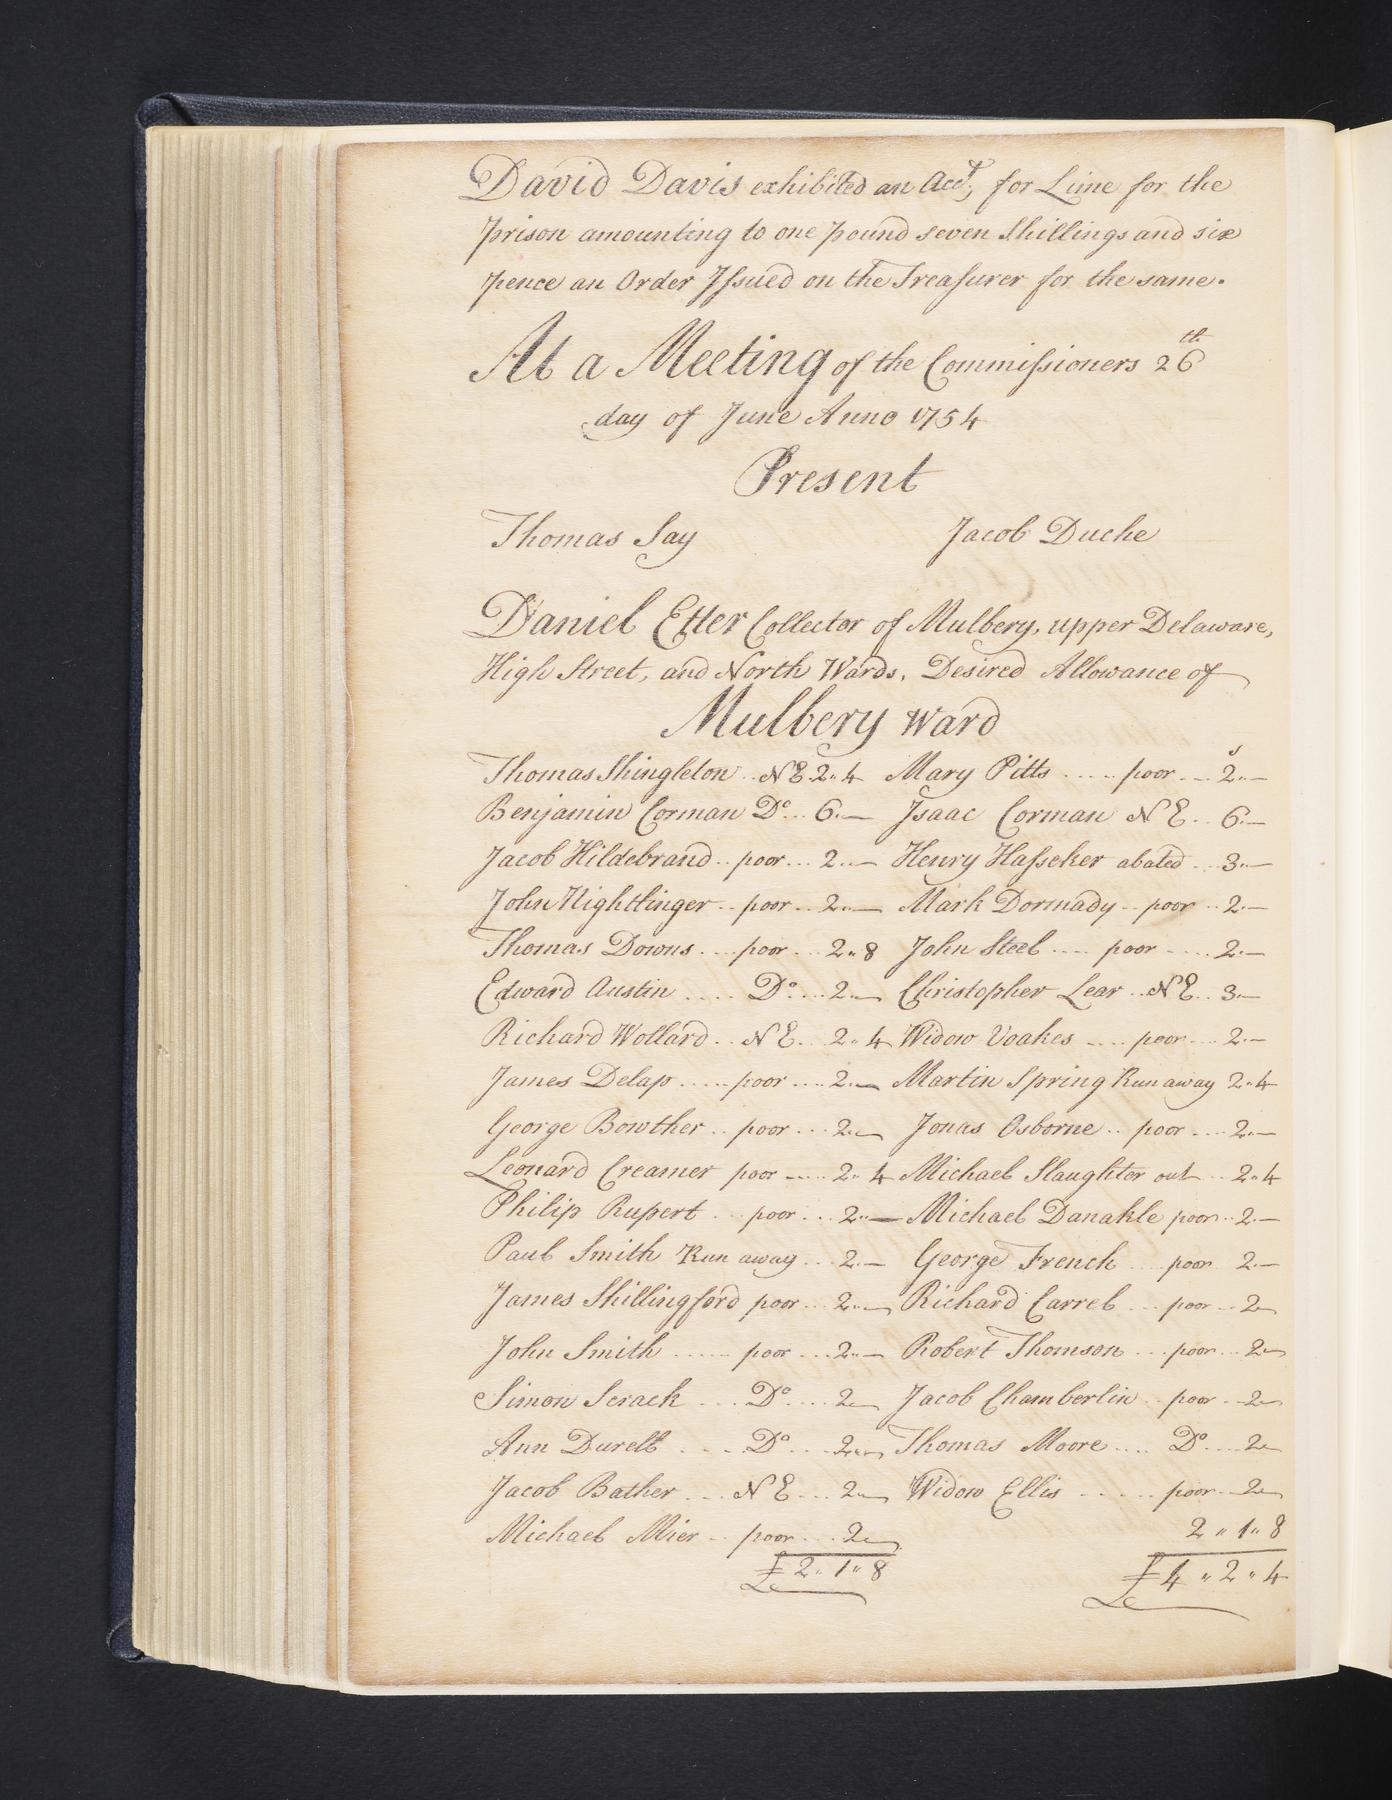 David Davis exhibited an Acct, for Lime for the
prison amounting to one pound seven Shillings and six
pence an Order Issued on the Treasurer for the same.
At a Meeting of the Commissioners 26th
day of June Anno 1754
Present
Thomas Say Jacob Duche
Daniel Etter Collector of Mulbery, upper Delaware,
High Street, and North Wards, Desired Allowance of
Mulbery Ward
Thomas Shingleton .. N E 2.. 4 Mary Pitts ..... poor ... 2s..—
Benjamin Corman Do... 6..— Isaac Corman N E .. 6..—
Jacob Hildebrand .. poor ... 2..— Henry Hasseker abated ... 3..—
John Nightlinger .. poor .. 2..— Mark Dormady .. poor .. 2..—
Thomas Downs .... poor ... 2.. 8 John Steel .... poor .... 2..—
Edward Austin .... Do.... 2..— Christopher Lear .. N E .. 3..—
Richard Wollard .. N E .. 2.. 4 Widow Voakes .... poor .... 2..—
James Delap ..... poor .... 2..— Martin Spring Run away 2.. 4
George Bowther .. poor ... 2..— Jonas Osborne .. poor .... 2..—
Leonard Creamer poor ..... 2.. 4 Michael Slaughter out ... 2.. 4
Philip Rupert ... poor ... 2..— Michael Danakle poor .. 2..—
Paul Smith Run away ... 2..— George French ... poor 2..—
James Shillingford poor ... 2..— Richard Carrel ... poor ... 2—
John Smith ...... poor ... 2..— Robert Thomson ... poor ... 2—
Simon Scrack ... Do.... 2— Jacob Chamberlin .. poor .. 2—
Ann Durell .... Do.... 2..— Thomas Moore .... Do.... 2—
Jacob Bather ... N E ... 2..— Widow Ellis ...... poor ... 2—
Michael Mier .. poor ... 2— 2 .. 1.. 8
£ 2.. 1.. 8 £ 4 .. 2 .. 4